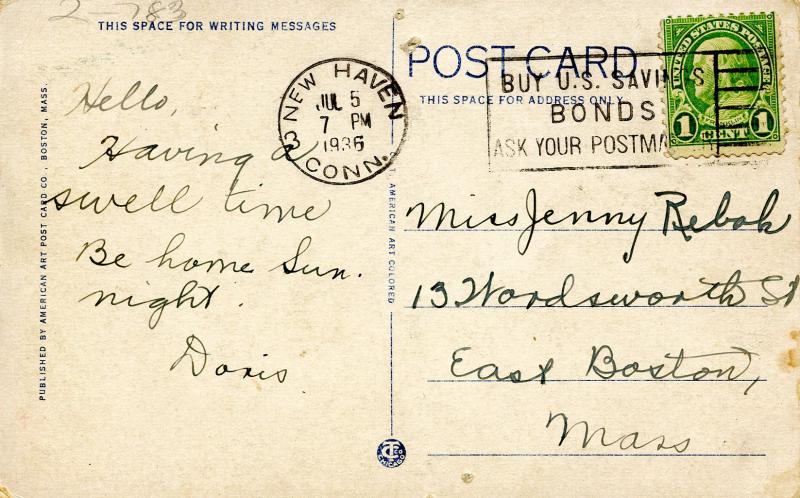 2-783
THIS SPACE FOR WRITING MESSAGES
POST CARD
THIS SPACE FOR ADDRESS ONLY
NEW HAVEN
JUL 5
7 PM
1936
3 CONN.
BUY U.S. SAVINGS
BONDS
ASK YOUR POSTMA
UNITED STATES POSTAGE
1 CENT 1
Hello,
Having a
swell time
Be home Sun.
night.
Doris
Miss Jenny Rebok
13 Wordsworth St
East Boston,
Mass
PUBLISHED BY AMERICAN ART POST CARD CO., BOSTON, MASS.
AMERICAN ART COLORED
CHICAGO